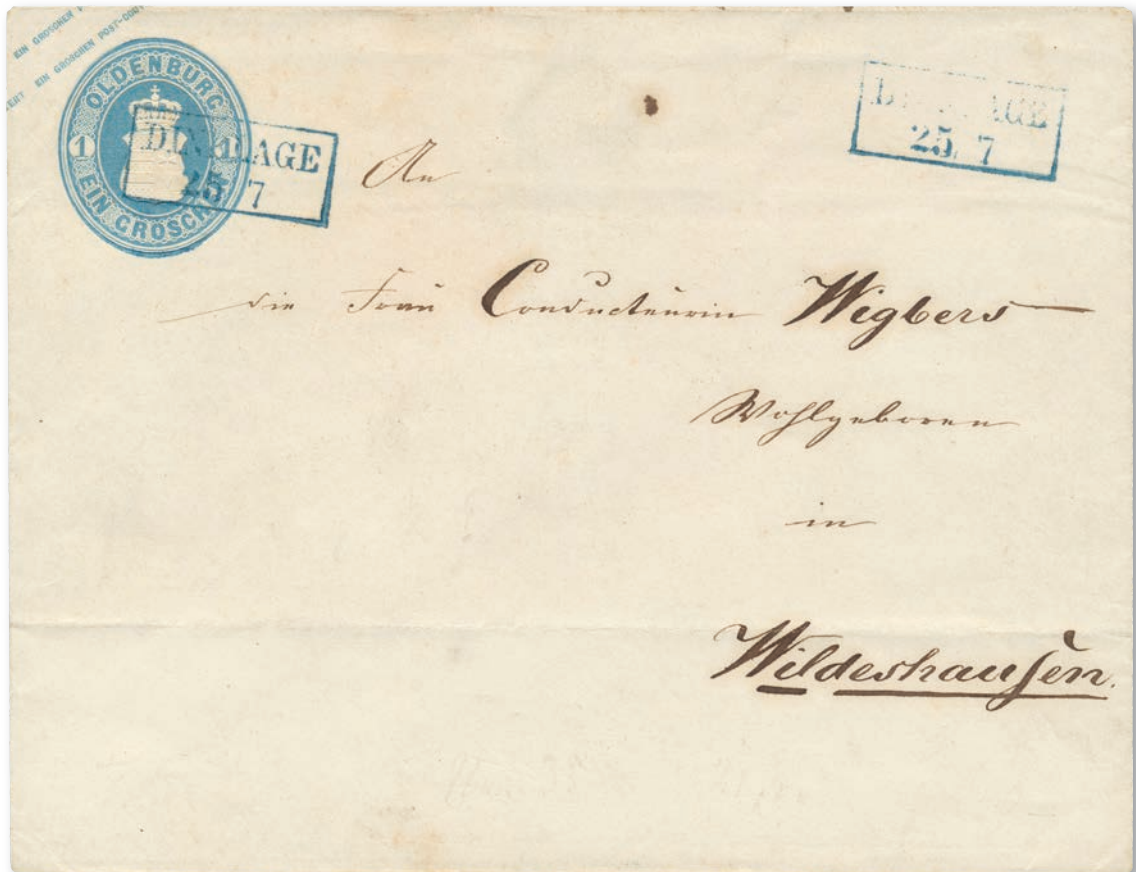 EIN GROSCHEN
EIN GROSCHEN POST-COUV
OLDENBURG
1 1
EIN GROSCH
25 7
25 7
An
die Frau Conducteurin Wigbers
Wohlgeboren
in
Wildeshausen.